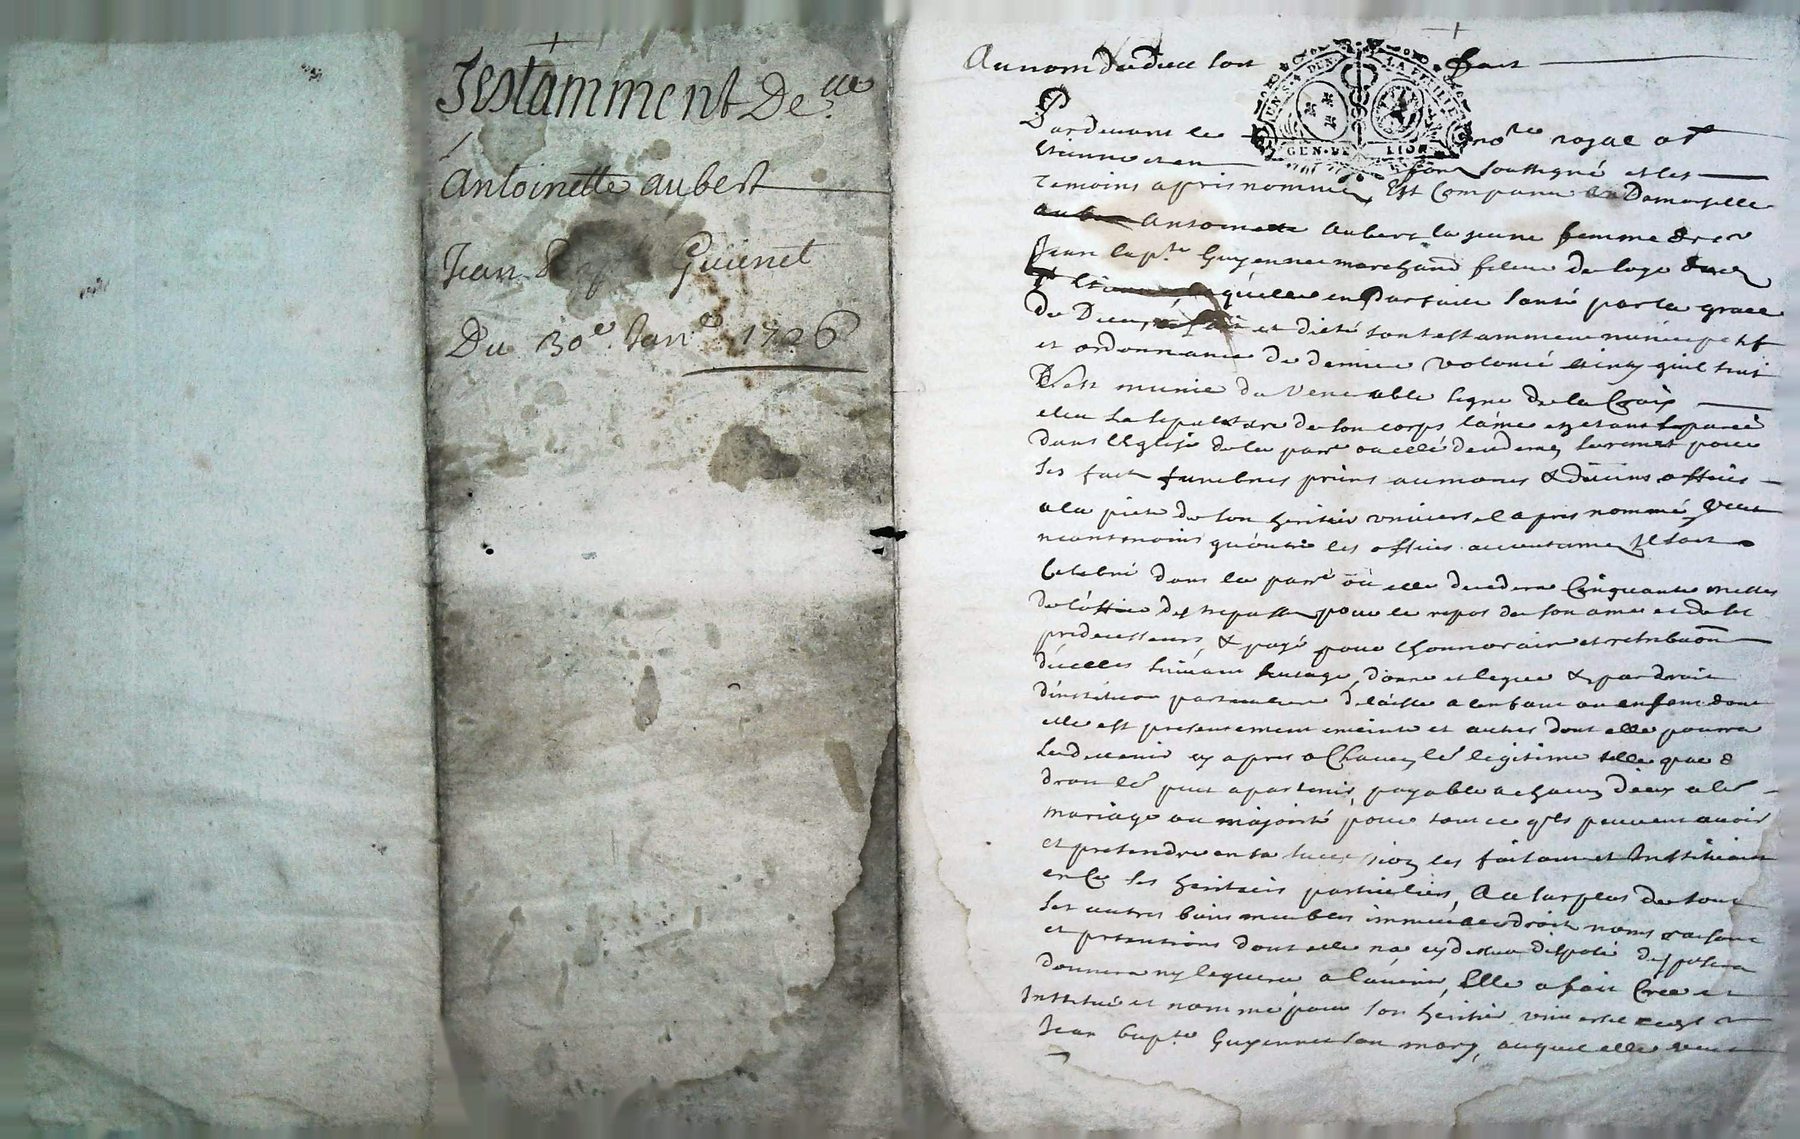 Testamment De.lle
Antoinette aubert
Jean Guienet
Du 30e. Janr. 1726
Au nom de dieu soit fait
UN S. 4 DEN. LA FEUILLE
GEN. DE LION
Pardevant le nore royal a St
Etienne et en soussigné et les
temoins apres nommes, Est Comparue Damoiselle
Antoinette Aubert la jeune femme de sr
Jean bapte. Guyennet marchand de soye
quelle en parfaite santé par la grace
de Dieu, a fait et dicté son testamment nuncupatif
et ordonnance de derniere volonté
S'est munie du Venerable signe de la Croix
eleu La sepulture de son corps l'ame en etant separée
dans l'Eglise de la parr. ou elle decedera, pour
ses fait funebres prieres aumones & divins offices
a la pieté de son heritier universel apres nommé, Veut
neantmoins qu'outre les offices accoutumez Il soit
Celebré dans la parre où elle decedera Cinquante messes
de l'office des trepassés pour le repos de son ame et de ses
predecesseurs, & payé pour l'honnoraire et retribuôn
d'icelles suivant l'usage, donne et legue & par droit
d'institution particuliere delaisse a l'enfant ou enfans dont
elle est presentement enceinte et autres dont elle pourra
le devenir cy apres a Chacun leur legitime telle que de
droit leur peut apartenir, payable a chacun d'eux a leur
mariage ou majorité pour tout ce qu'ils peuvent avoir
et pretendre en sa succession les faisant et Instituant
en Ce ses heritiers particuliers, Au surplus de tous
ses autres biens meubles immeubles droits noms raisons
et pretentions dont elle na cy dessus disposé disposera
donnera ny leguera a l'avenir, Elle a fait Créé et
Institué et nommé pour son heritier universel
Jean bapte Guyennet son mary, auquel elle veut